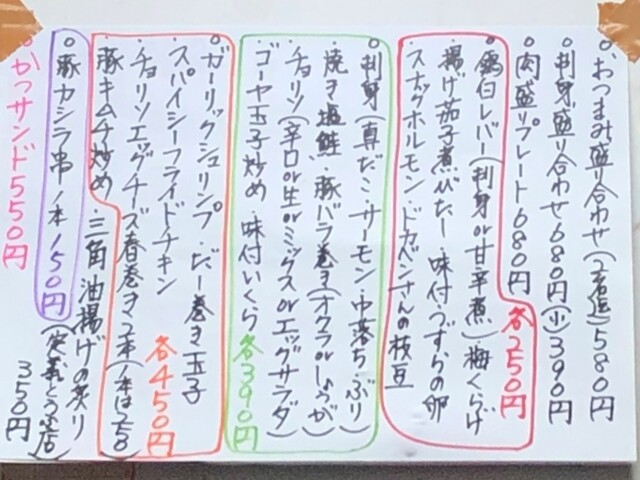 ○おつまみ盛り合わせ(2名迄)580円
○刺身盛り合わせ680円(小)390円
○肉盛りプレート680円
○鶏白レバー(刺身or甘辛煮)・梅くらげ
・揚げ茄子煮びたし・味付うずらの卵
・スナックホルモン・ドカベンさんの枝豆
各250円
○刺身(真だこ・サーモン・中落ち・ぶり)
・焼き塩鮭・豚バラ巻き(オクラorしょうが)
・チョリソ(辛口or生orミックスorエッグサラダ)
・ゴーヤ玉子炒め・味付いくら
各390円
○ガーリックシュリンプ・だし巻き玉子
・スパイシーフライドチキン
・チョリソエッグチーズ春巻き2本(1本は
・豚キムチ炒め
各450円
・三角油揚げの炙り
350円
○豚カシラ串1本150円
○かつサンド550円